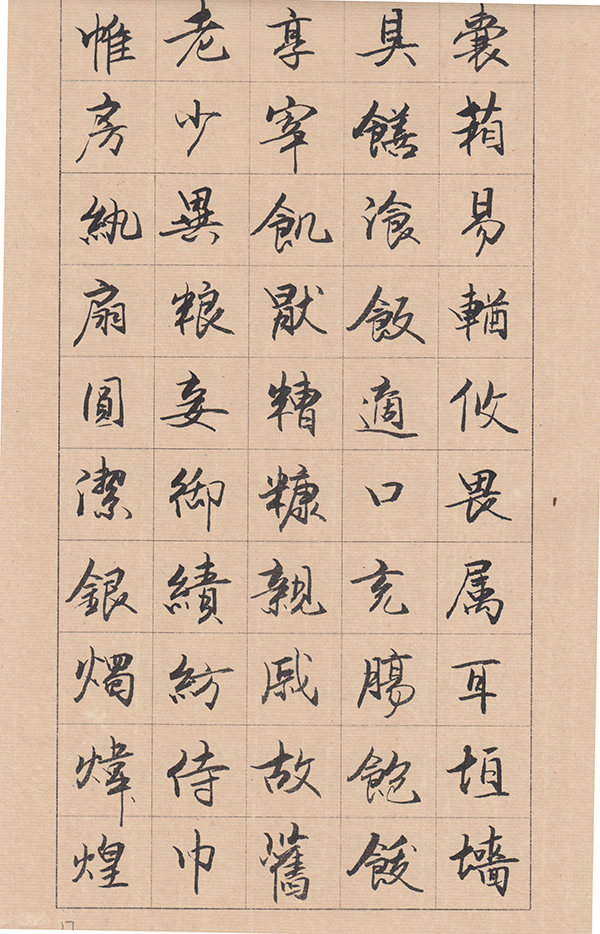 囊箱易輶攸畏属耳垣墙
具饍飡飯適口充膓飽飫
享宰飢猒糟糠親戚故舊
老少異粮妾御績紡侍巾
帷房紈扇圓潔銀燭煒煌